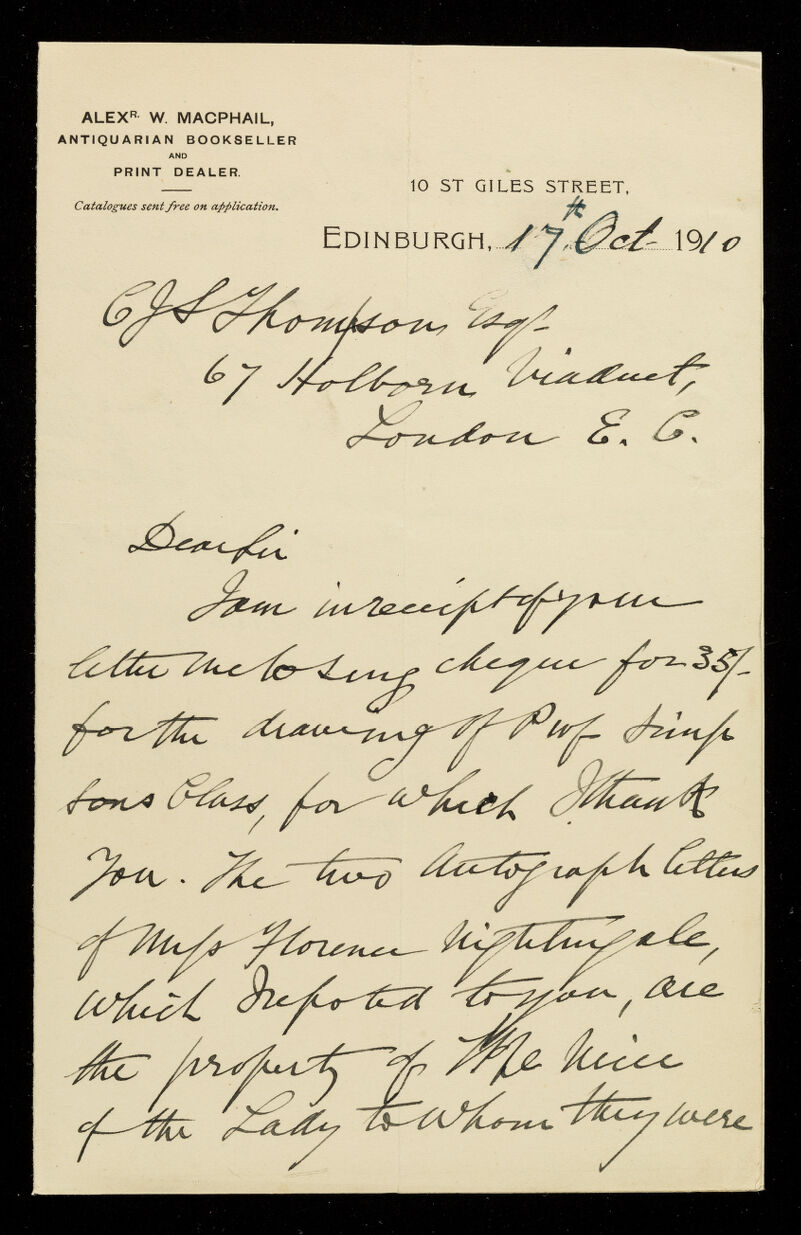 ALEXR. W. MACPHAIL,
ANTIQUARIAN BOOKSELLER
AND
PRINT DEALER.
Catalogues sent free on application.
10 ST GILES STREET,
EDINBURGH, 17th Oct 1910
C J S Thompson Esq
67 Holborn Viaduct,
London E. C.
Dear Sir
I am in receipt of your
letter enclosing cheque for 35/-
for the drawing of Prof Simp
sons Class, for which I thank
You. The two Autograph letters
of Miss Florence Nightingale,
which I reported to you, are
the property of the Niece
of the Lady to Whom they were